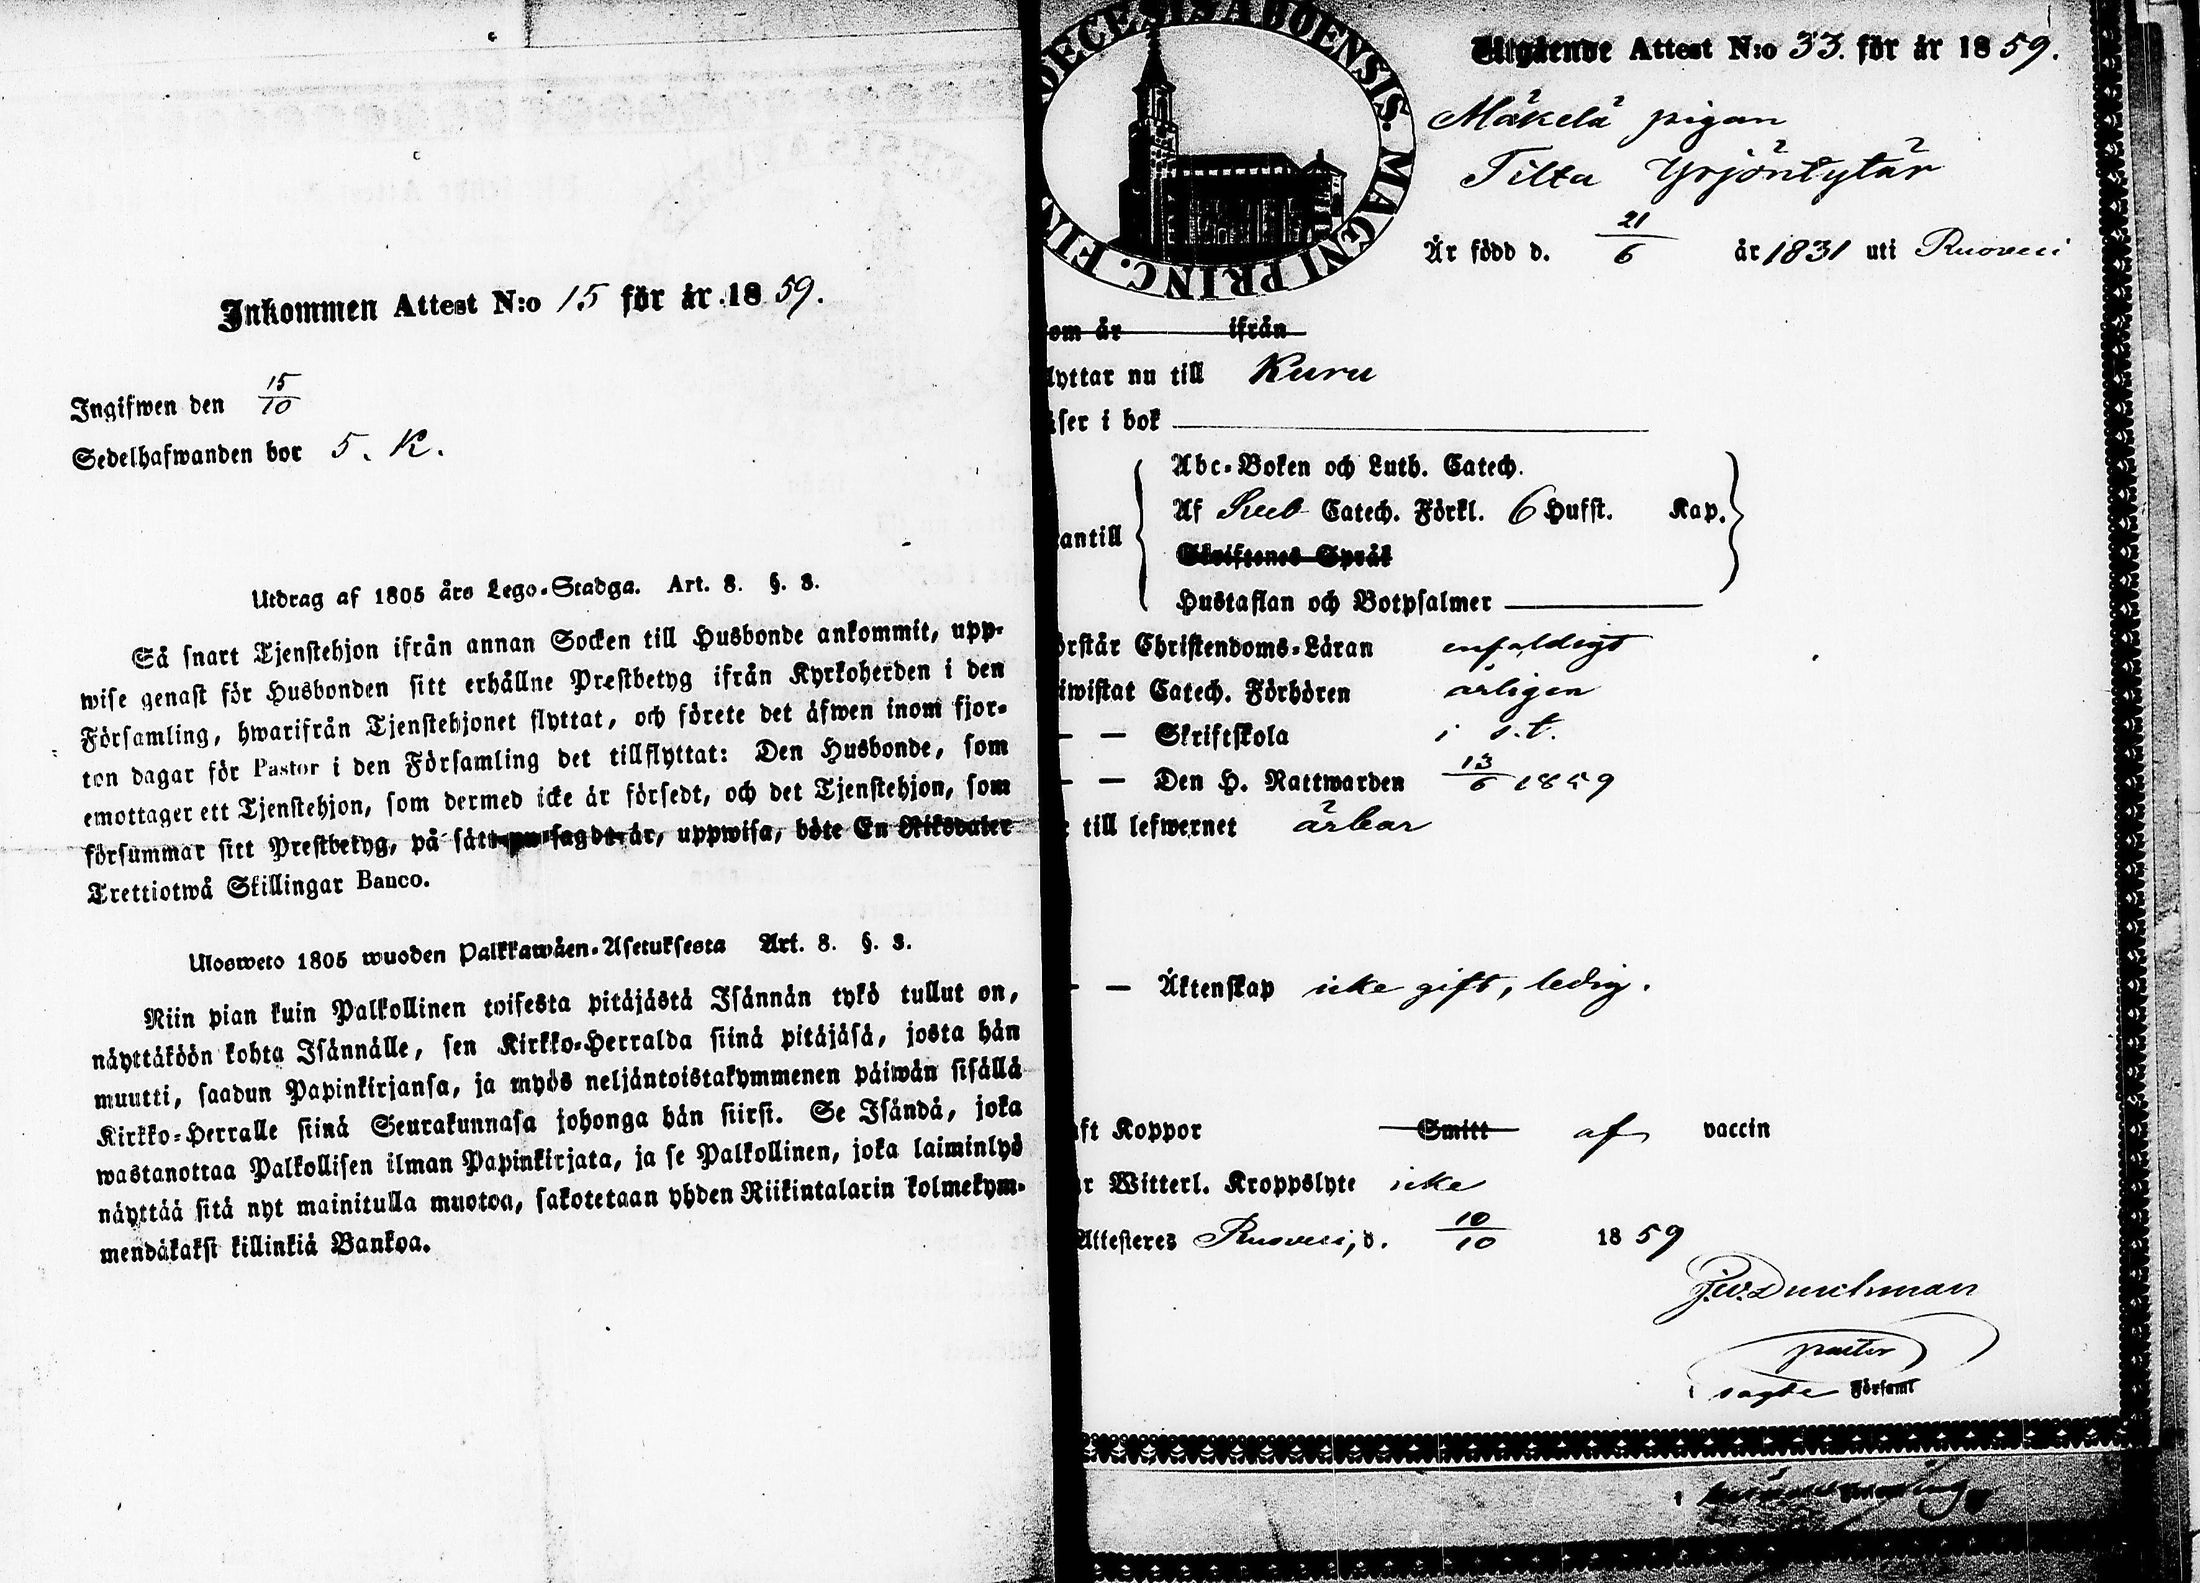 Inkommen Attest N:o 15 för år 1859.
Ingifwen den 15/10
Sedelhafwanden bor 5. K.
Utdrag af 1805 års Lego-Stadga. Art. 8. §. 3.
Så snart Tjenstehjon ifrån annan Socken till Husbonde ankommit, upp-
wise genast för Husbonden sitt erhållne Prestbetyg ifrån Kyrkoherden i den
Församling, hwarifrån Tjenstehjonet flyttat, och förete det äfwen inom fjor-
ton dagar för Pastor i den Församling det tillflyttat: Den Husbonde, som
emottager ett Tjenstehjon, som dermed icke är försedt, och det Tjenstehjon, som
försummar sitt Prestbetyg, på sätt nu sagdt är, uppwisa, böte En Riksdaler
Trettiotwå Skillingar Banco.
Ulosweto 1805 wuoden Palkkawäen-Asetuksesta Art. 8. §. 3.
Niin pian kuin Palkollinen toisesta pitäjästä Isännän tykö tullut on,
näyttäköön kohta Isännälle, sen Kirkko-Herralda siinä pitäjäsä, josta hän
muutti, saadun Papinkirjansa, ja myös neljäntoistakymmenen päiwän sisällä
Kirkko-Herralle siinä Seurakunnasa johonga hän siirsi. Se Isändä, joka
wastanottaa Palkollisen ilman Papinkirjata, ja se Palkollinen, joka laiminlyö
näyttää sitä nyt mainitulla muotoa, sakotetaan yhden Riikintalarin kolmekym-
mendäkaksi killinkiä Bankoa.
DECESIS ABOENSIS. MAGNI PRINC. FIN
Utgående Attest N:o 33. för år 1859.
Mäkelä pigan
Tilta Yrjöntytär
Är född d. 21/6 år 1831 uti Ruovesi
om år ifrån
lyttar nu till Kuru
äser i bok
tantill
Abc-Boken och Luth. Catech.
Af Sveb Catech. Förkl. 6 Hufst. Kap.
Skriftenes Språk
Hustaflan och Botpsalmer
örstår Christendoms-Läran enfaldigt
iwistat Catech. Förhören årligen
— — Skriftskola i s.t.
— — Den H. Nattwarden 13/6 1859
till lefwernet ärbar
— — Äktenskap icke gift, ledig.
aft Koppor Smitt af vaccin
ar Witterl. Kroppslyte icke
Attesteres Ruovesi, d. 10/10 1859
J.W. Durchman
pastor
i sagde Församl